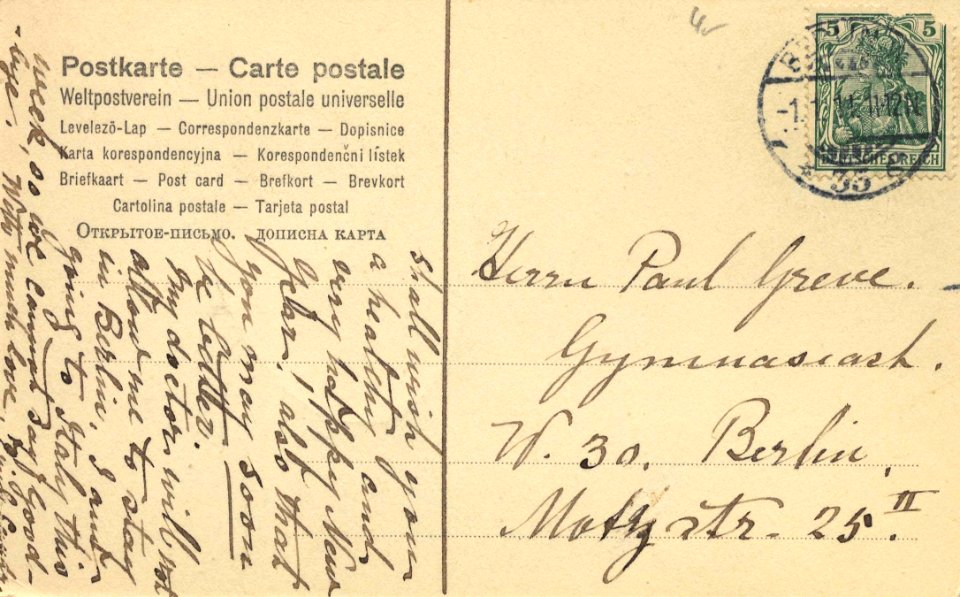 Postkarte — Carte postale
Weltpostverein — Union postale universelle
Levelező-Lap — Correspondenzkarte — Dopisnice
Karta korespondencyjna — Korespondenční lístek
Briefkaart — Post card — Brefkort — Brevkort
Cartolina postale — Tarjeta postal
Открытое-письмо. дописна карта
shall wish you
a healthy and
very happy New
Year. I also
you may soon
be better.
My doctor will not
allow me to stay
in Berlin, I am
going to Italy this
week, so we cannot say Good-
bye.
With much love,
5 5
DEUTSCHES REICH
35
Herrn Paul Greve.
Gymnasiast.
W. 30. Berlin,
Motzstr. 25 II